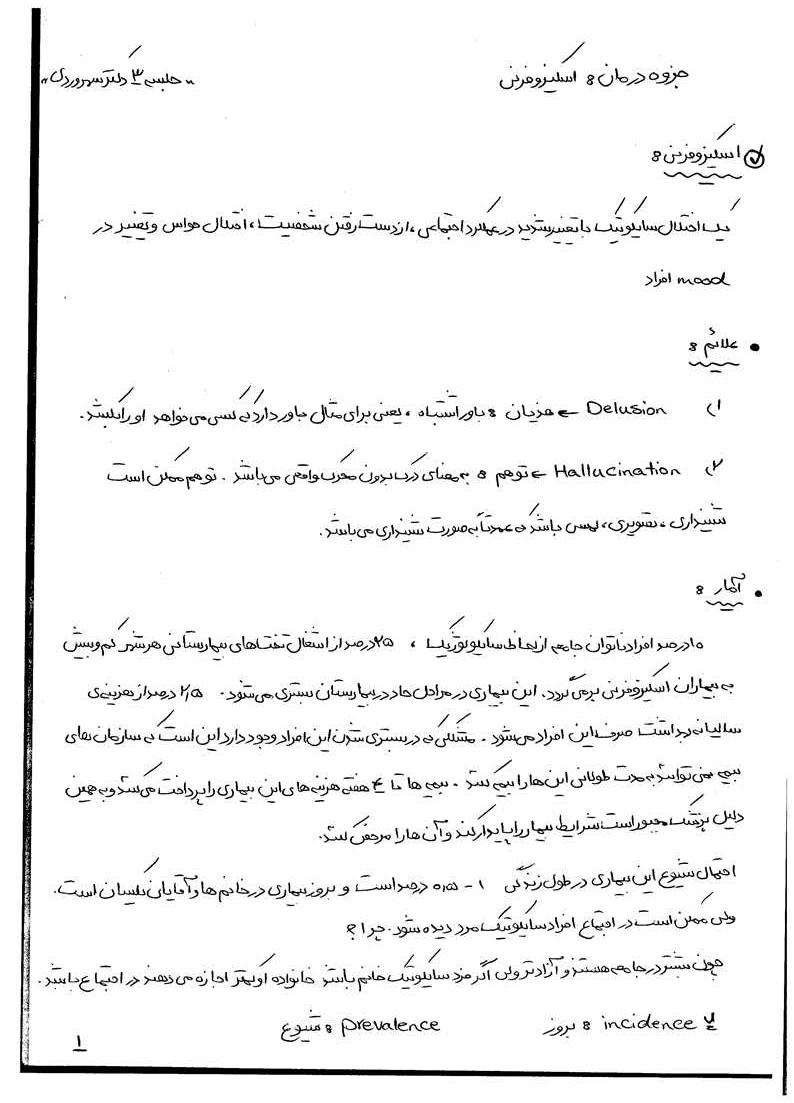 جزوه درمان : اسکیزوفرنی
"جلسه ۳ دکتر سهروردی"
اسکیزوفرنی :
یک اختلال سایکوتیک با تغییر شدید در عملکرد اجتماعی ، از دست رفتن شخصیت ، اختلال حواس و تغییر در
mood افراد
• علائم :
۱) Delusion ← هزیان : باور اشتباه ، یعنی برای مثال باور دارد که کسی می خواهد او را بکشد .
۲) Hallucination ← توهم : به معنای درک بدون محرک واقعی می باشد . توهم ممکن است
شنیداری ، تصویری ، لمسی باشد که عمدتاً به صورت شنیداری می باشد .
• آمار :
۱۰ درصد افراد ناتوان جامعه از لحاظ سایکولوژیک ، ۲۵ درصد از اشغال تخت های بیمارستانی هر شهر کم و بیش
به بیماران اسکیزوفرنی برمی گردد . این بیماری در مراحل حاد در بیمارستان بستری می شود . ۲/۵ درصد از هزینه ی
سالیانه بهداشت صرف این افراد می شود . مشکلی که در بستری شدن این افراد وجود دارد این است که سازمان های
بیمه نمی توانند به مدت طولانی این ها را بیمه کنند . بیمه ها تا ۴ هفته هزینه های این بیماری را پرداخت می کنند و به همین
دلیل پزشک مجبور است شرایط بیمار را پایدار کند و آن ها را مرخص کند .
احتمال شیوع این بیماری در طول زندگی ۱ - ۰/۵ درصد است و بروز بیماری در خانم ها و آقایان یکسان است .
ولی ممکن است در اجتماع افراد سایکوتیک مرد دیده شود . چرا ؟
چون بیشتر در جامعه هستند و آزادتر ولی اگر فرد سایکوتیک خانم باشد خانواده او کمتر اجازه می دهند در اجتماع باشد .
incidence : بروز prevalence : شیوع
۱